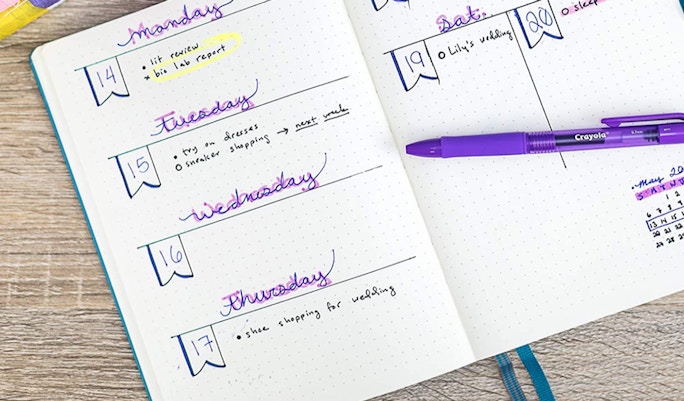 Monday
14
• lit review
× bio lab report
Tuesday
15
• try on dresses
O sneaker shopping → next week
Wednesday
16
Thursday
17
• shoe shopping for wedding
Sat.
19
O Lily's wedding
20
O sleep
Crayola
May 20
S M T W
1 2
6 7 8 9
13 14 15 1
20 21 22